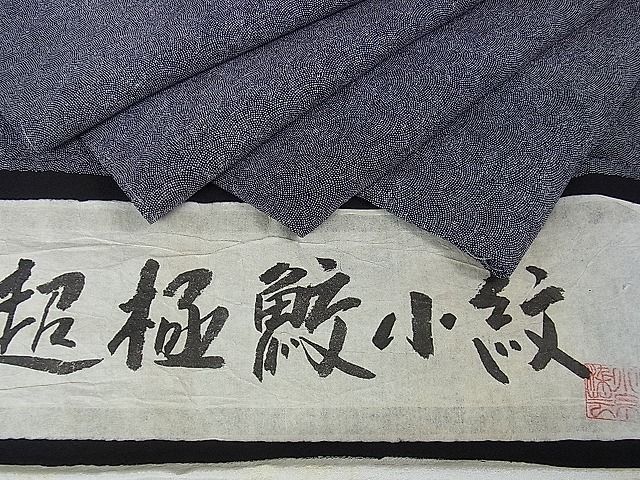 超極鮫小紋